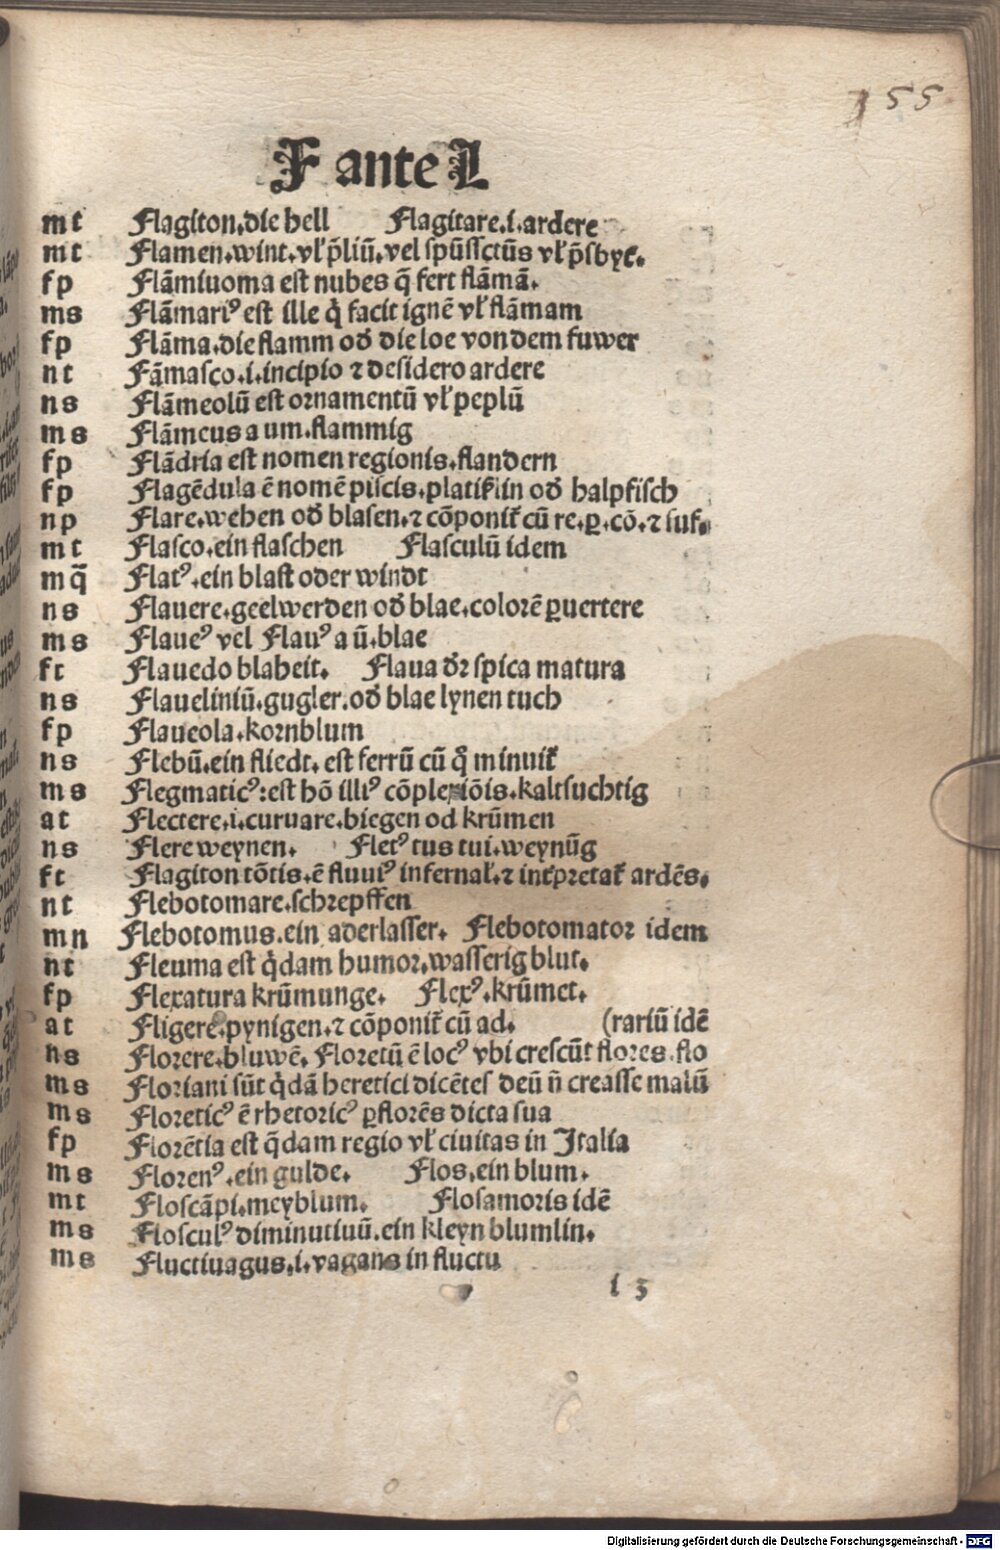 155
F ante L
mt Flagiton.die hell Flagitare.i.ardere
mt Flamen.wint.vł p̄liū.vel spūſſctūs vł p̄ſbyt̄.
fp Flāmiuoma est nubes q̄ fert flāmā.
ms Flāmariꝰ est ille q̇ facit ignē vł flāmam
fp Flāma.die flamm od̄ die loe von dem fuwer
nt Fāmasco.i.incipio ⁊ desidero ardere
ns Flāmeolū est ornamentū vł peplū
ms Flāmeus a um.flammig
fp Flādria est nomen regionis.flandern
fp Flagēdula ē nomē piscis.platißlin od̄ halpfisch
np Flare.wehen od̄ blasen.⁊ cōponit̄ cū re.ꝑ.cō.⁊ suf.
mt Flasco.ein flaschen Flasculū idem
mq̄ Flatꝰ.ein blast oder windt
ns Flauere.geelwerden od̄ blae.colorē ꝑuertere
ms Flaueꝰ vel Flauꝰ a ū.blae
ft Flauedo blaheit. Flaua dr̄ spica matura
ns Flaueliniū.gugler.od̄ blae lynen tuch
fp Flaueola.kornblum
ns Flebū.ein fliedt. est ferrū cū q̊ minuit̄
ms Flegmaticꝰ:est hō illiꝰ cōplexiōis.kaltsuchtig
at Flectere.i.curuare.biegen od krūmen
ns Flere weynen. Fletꝰ tus tui.weynūg
ft Flagiton tōtis.ē fluuiꝰ infernał.⁊ int̄pretat̄ ardēs.
nt Flebotomare.schrepffen
mn Flebotomus.ein aderlasser. Flebotomator idem
nt Fleuma est q̇dam humor.wasserig blut.
fp Flexatura krūmunge. Flexꝰ.krūmet.
at Fligere.pynigen.⁊ cōponit̄ cū ad. (rariū idē
ns Florere.bluwē. Floretū ē locꝰ vbi crescūt flores.flo
ms Floriani sūt q̇dā heretici dicētes deū n̄ creasse malū
ms Floreticꝰ ē rhetoricꝰ ꝑflorēs dicta sua
fp Florētia est q̄dam regio vł ciuitas in Italia
ms Florenꝰ.ein gulde. Flos.ein blum.
mt Floscāpi.meyblum. Flosamoris idē
ms Flosculꝰ diminutiuū.ein kleyn blumlin.
ms Fluctiuagus.i.vagans in fluctu
i 3
Digitalisierung gefördert durch die Deutsche Forschungsgemeinschaft - DFG